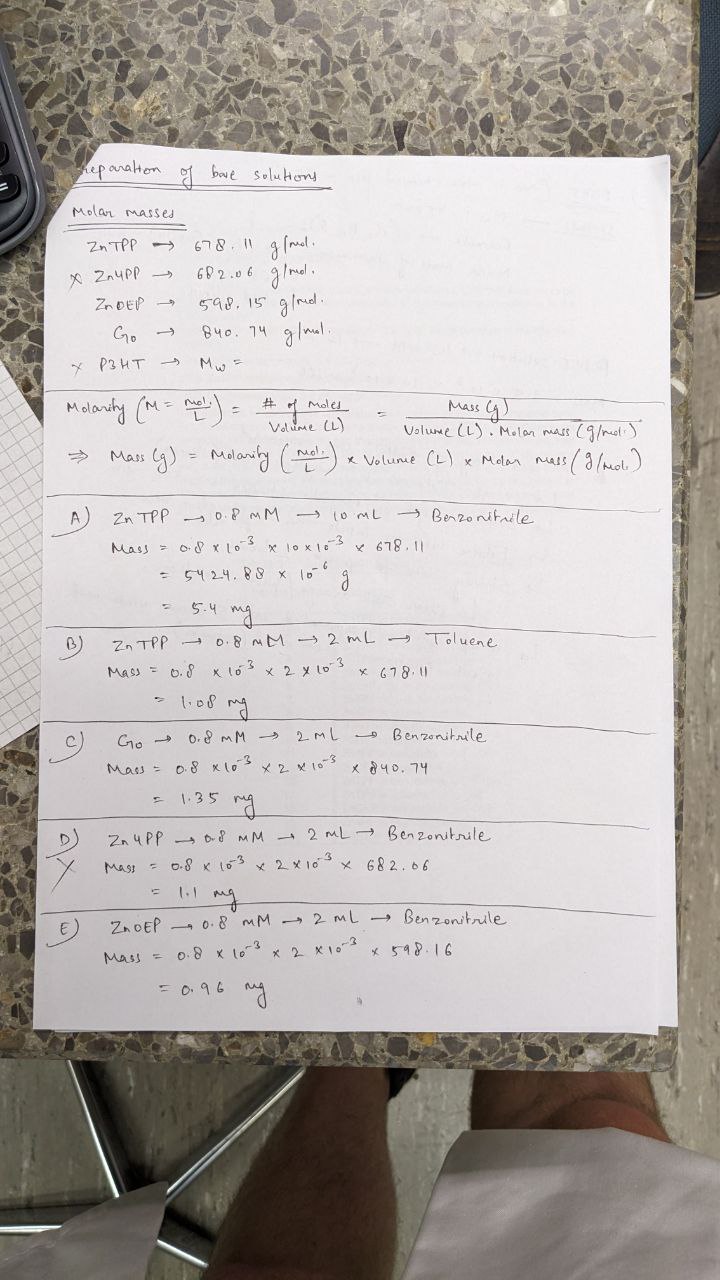 reparation of base solutions
Molar masses
ZnTPP → 678.11 g/mol.
x Zn4PP → 682.06 g/mol.
ZnOEP → 598.15 g/mol.
→ 840.74 g/mol.
x P3HT → Mw =
Molarity (M = mol./L) = # of moles / Volume (L) = Mass (g) / Volume (L) . Molar mass (g/mol.)
⇒ Mass (g) = Molarity (mol./L) x Volume (L) x Molar mass (g/mol.)
A) ZnTPP → 0.8 mM → 10 mL → Benzonitrile
Mass = 0.8 x 10⁻³ x 10 x 10⁻³ x 678.11
= 5424.88 x 10⁻⁶ g
= 5.4 mg
B) ZnTPP → 0.8 mM → 2 mL → Toluene
Mass = 0.8 x 10⁻³ x 2 x 10⁻³ x 678.11
= 1.08 mg
C) → 0.8 mM → 2 mL → Benzonitrile
Mass = 0.8 x 10⁻³ x 2 x 10⁻³ x 840.74
= 1.35 mg
D) Zn4PP → 0.8 mM → 2 mL → Benzonitrile
X Mass = 0.8 x 10⁻³ x 2 x 10⁻³ x 682.06
= 1.1 mg
E) ZnOEP → 0.8 mM → 2 mL → Benzonitrile
Mass = 0.8 x 10⁻³ x 2 x 10⁻³ x 598.16
= 0.96 mg
=